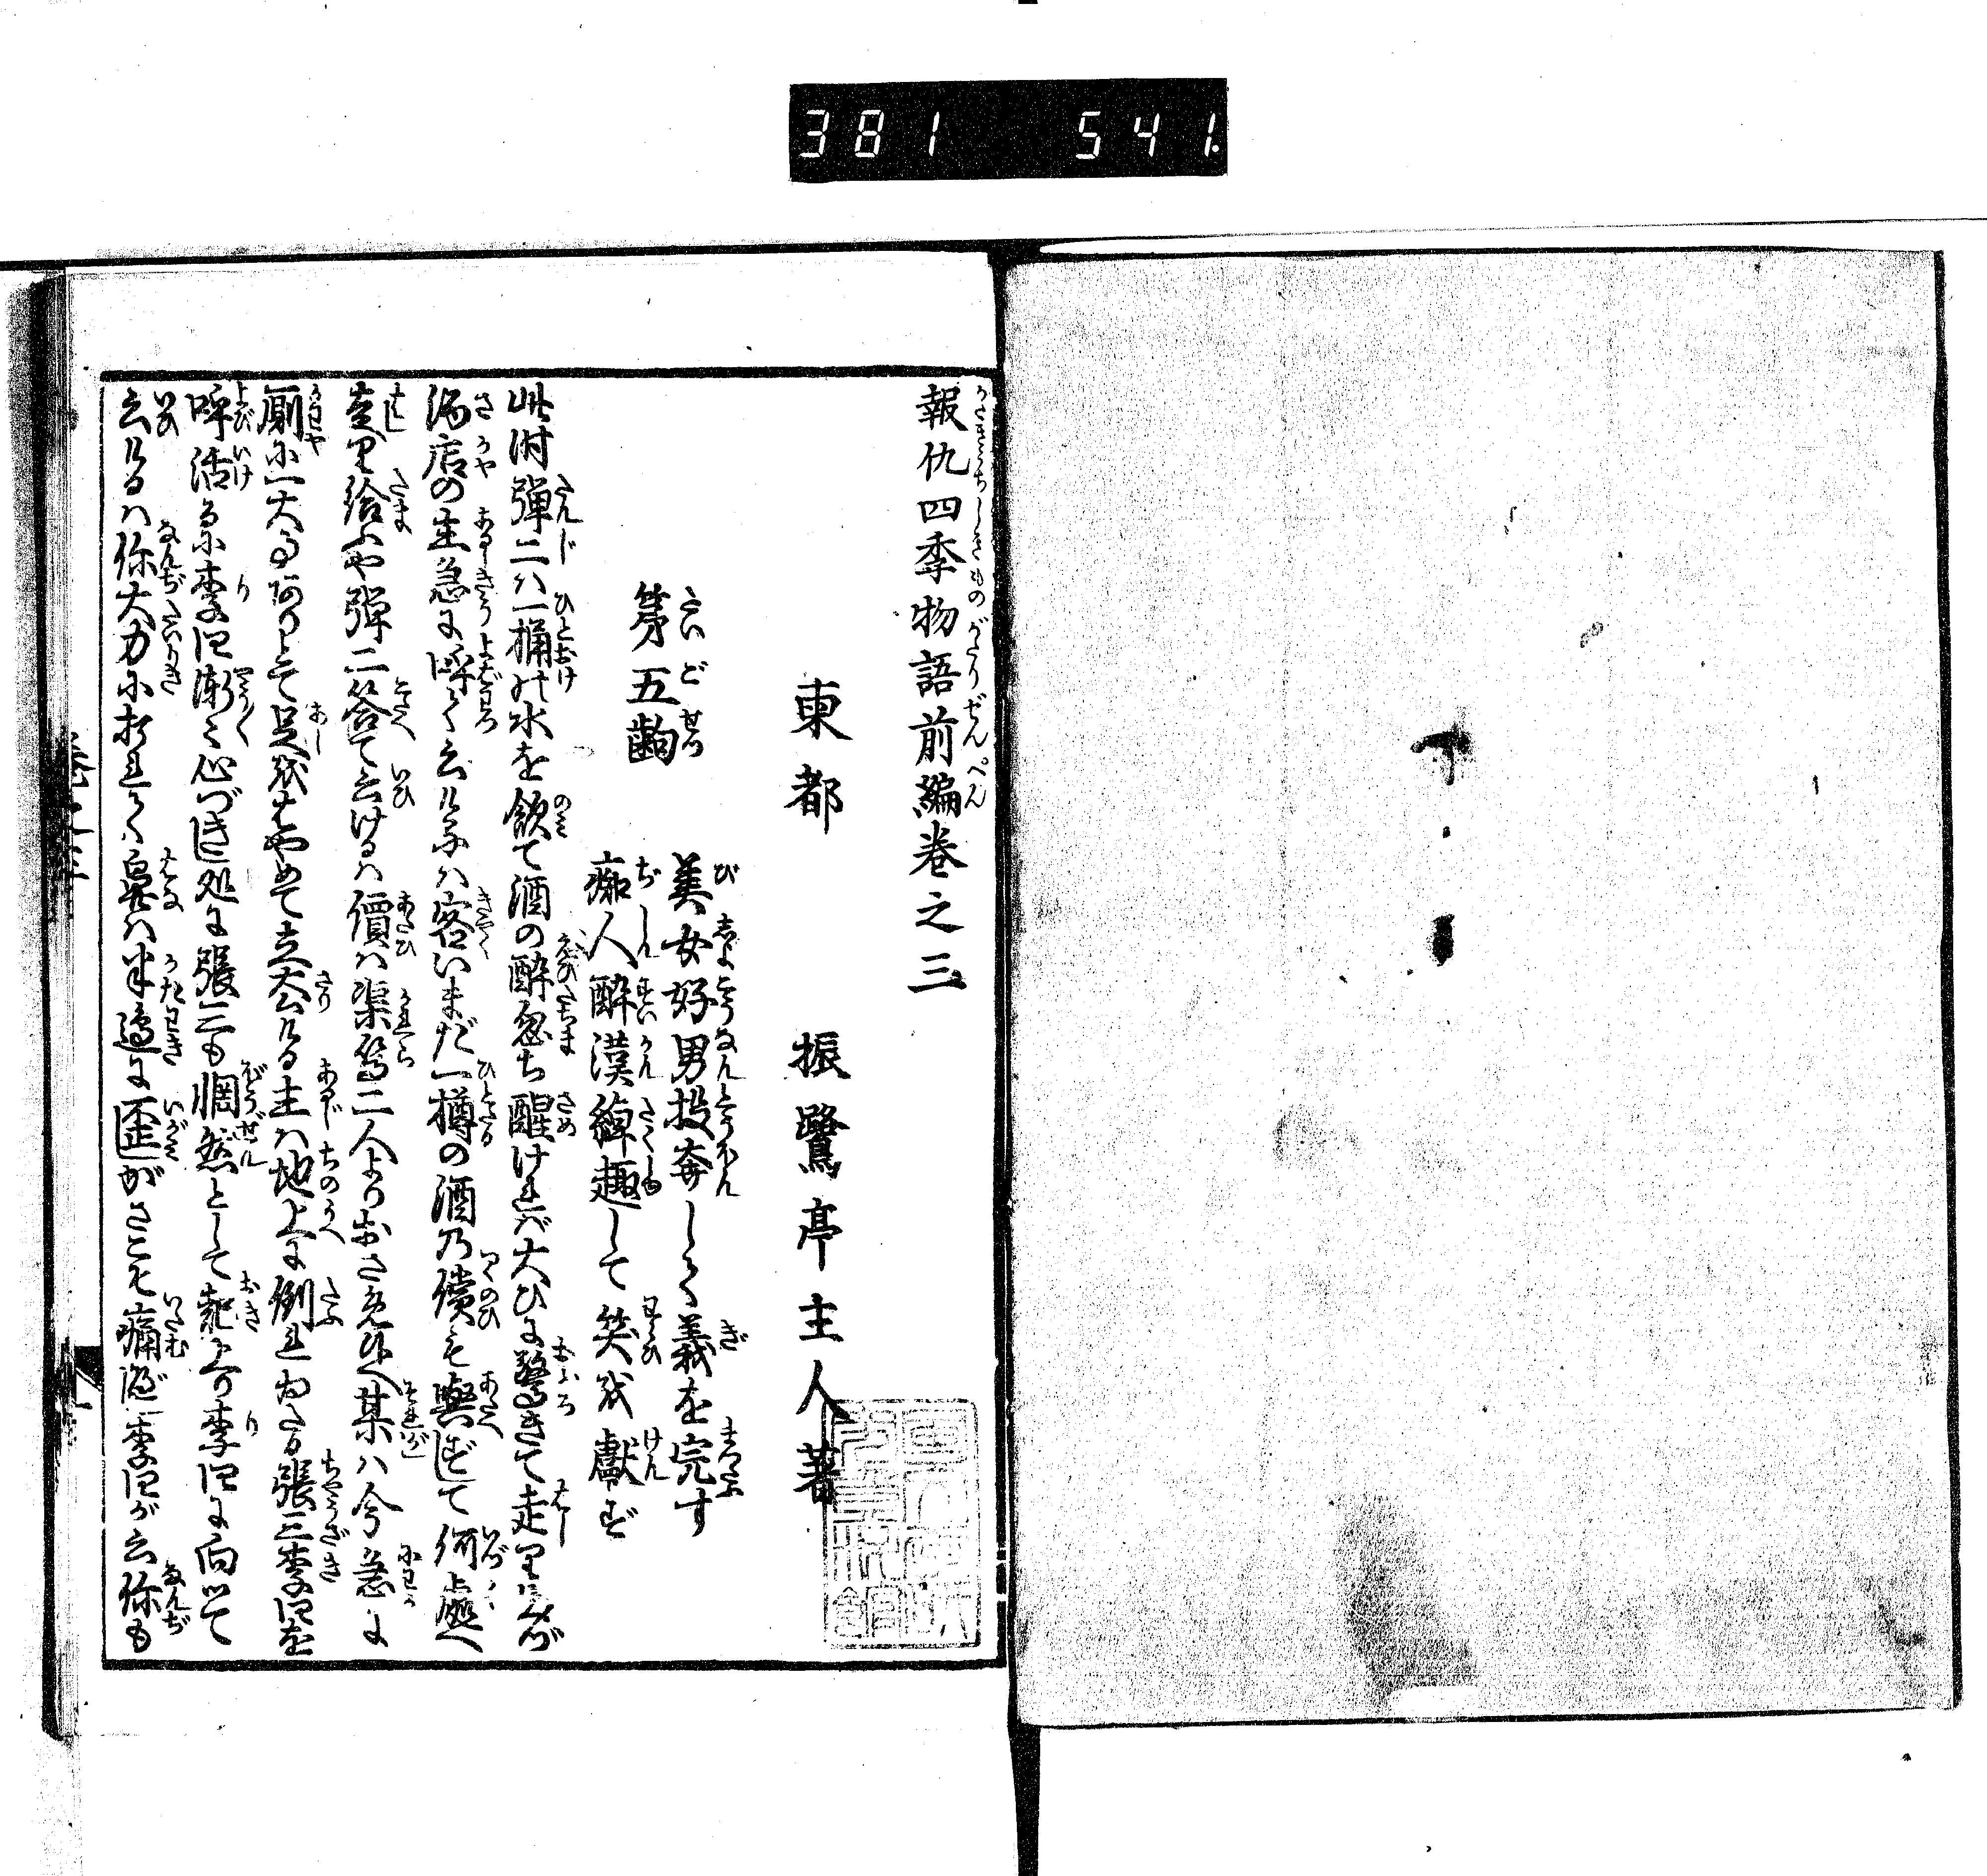 381 541
報仇四季物語前編巻之三
東都 振鷺亭主人著
第五齣
美女好男投奔して義を完す
痴人酔漢綽趣して笑を献ず
此時弾二ハ一桶の水を飲て酒の酔忽ち醒けれバ大ひに驚きて走り出んが
酒店の主急に呼て云けるハ客いまだ一樽の酒乃償を与ずして何處へ
走り給ふや弾二答て云けるハ價ハ渠等二人より某ハ今急に
廁に一大事ありとて足をはやめて立去ける主ハ地上に倒れゐたる張三李四を
呼活るに李四漸く心づき処に張三も惘然として起上り李四に向ひて
云けるハ你大力に打れて鼻ハ半邉に歪がさこそ痛ん李四が云你も